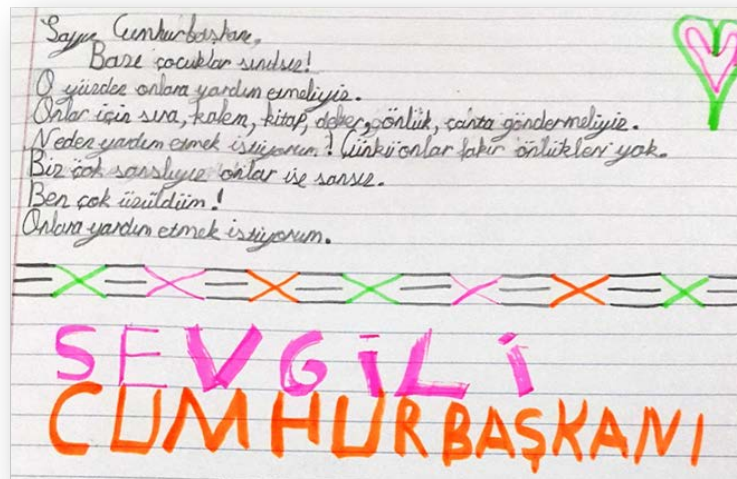 Sayın Cumhurbaşkanı,
Bazı çocuklar sırasız!
O yüzden onlara yardım etmeliyiz.
Onlar için sıra, kalem, kitap, defter, önlük, çanta göndermeliyiz.
Neden yardım etmek istiyorum! Çünkü onlar fakir önlükleri yok.
Biz çok şanslıyız onlar ise şansız.
Ben çok üzüldüm!
Onlara yardım etmek istiyorum.
SEVGİLİ
CUMHURBAŞKANI